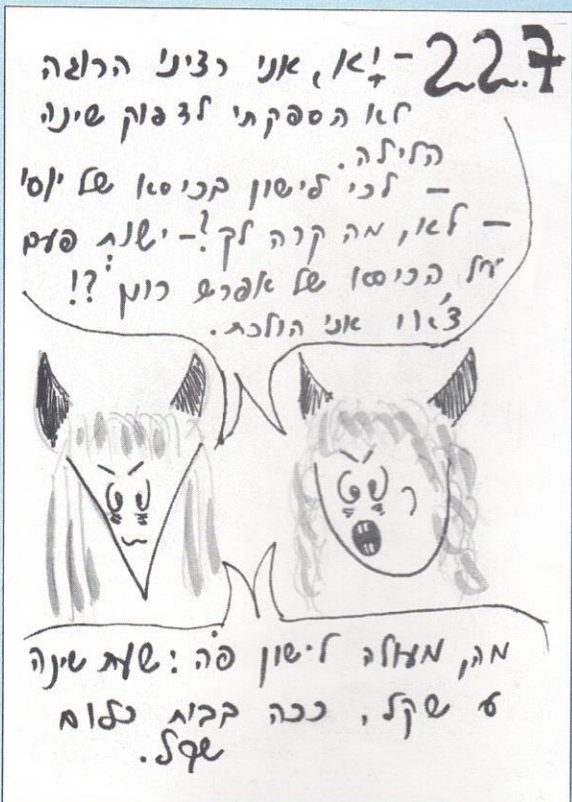 22.7
- יא, אני רציני הרוגה
לא הספקתי לדפוק שינה
הלילה.
- לכי לישון בכיסא של יוסי
- לא, מה קרה לך? - ישנת פעם
על הכיסא של אפרש רומן?!
צ'או אני הולכת.
מה, מעולה לישון פה: שעת שינה
שקל, ככה בבות כלום
שקל.